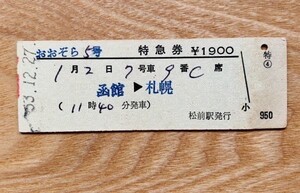 53.12.27
おおぞら5号 特急券 ¥1900
1月2日7号車9番C席
函館▶札幌
(11時40分発車) 松前駅発行
特
④
小
950